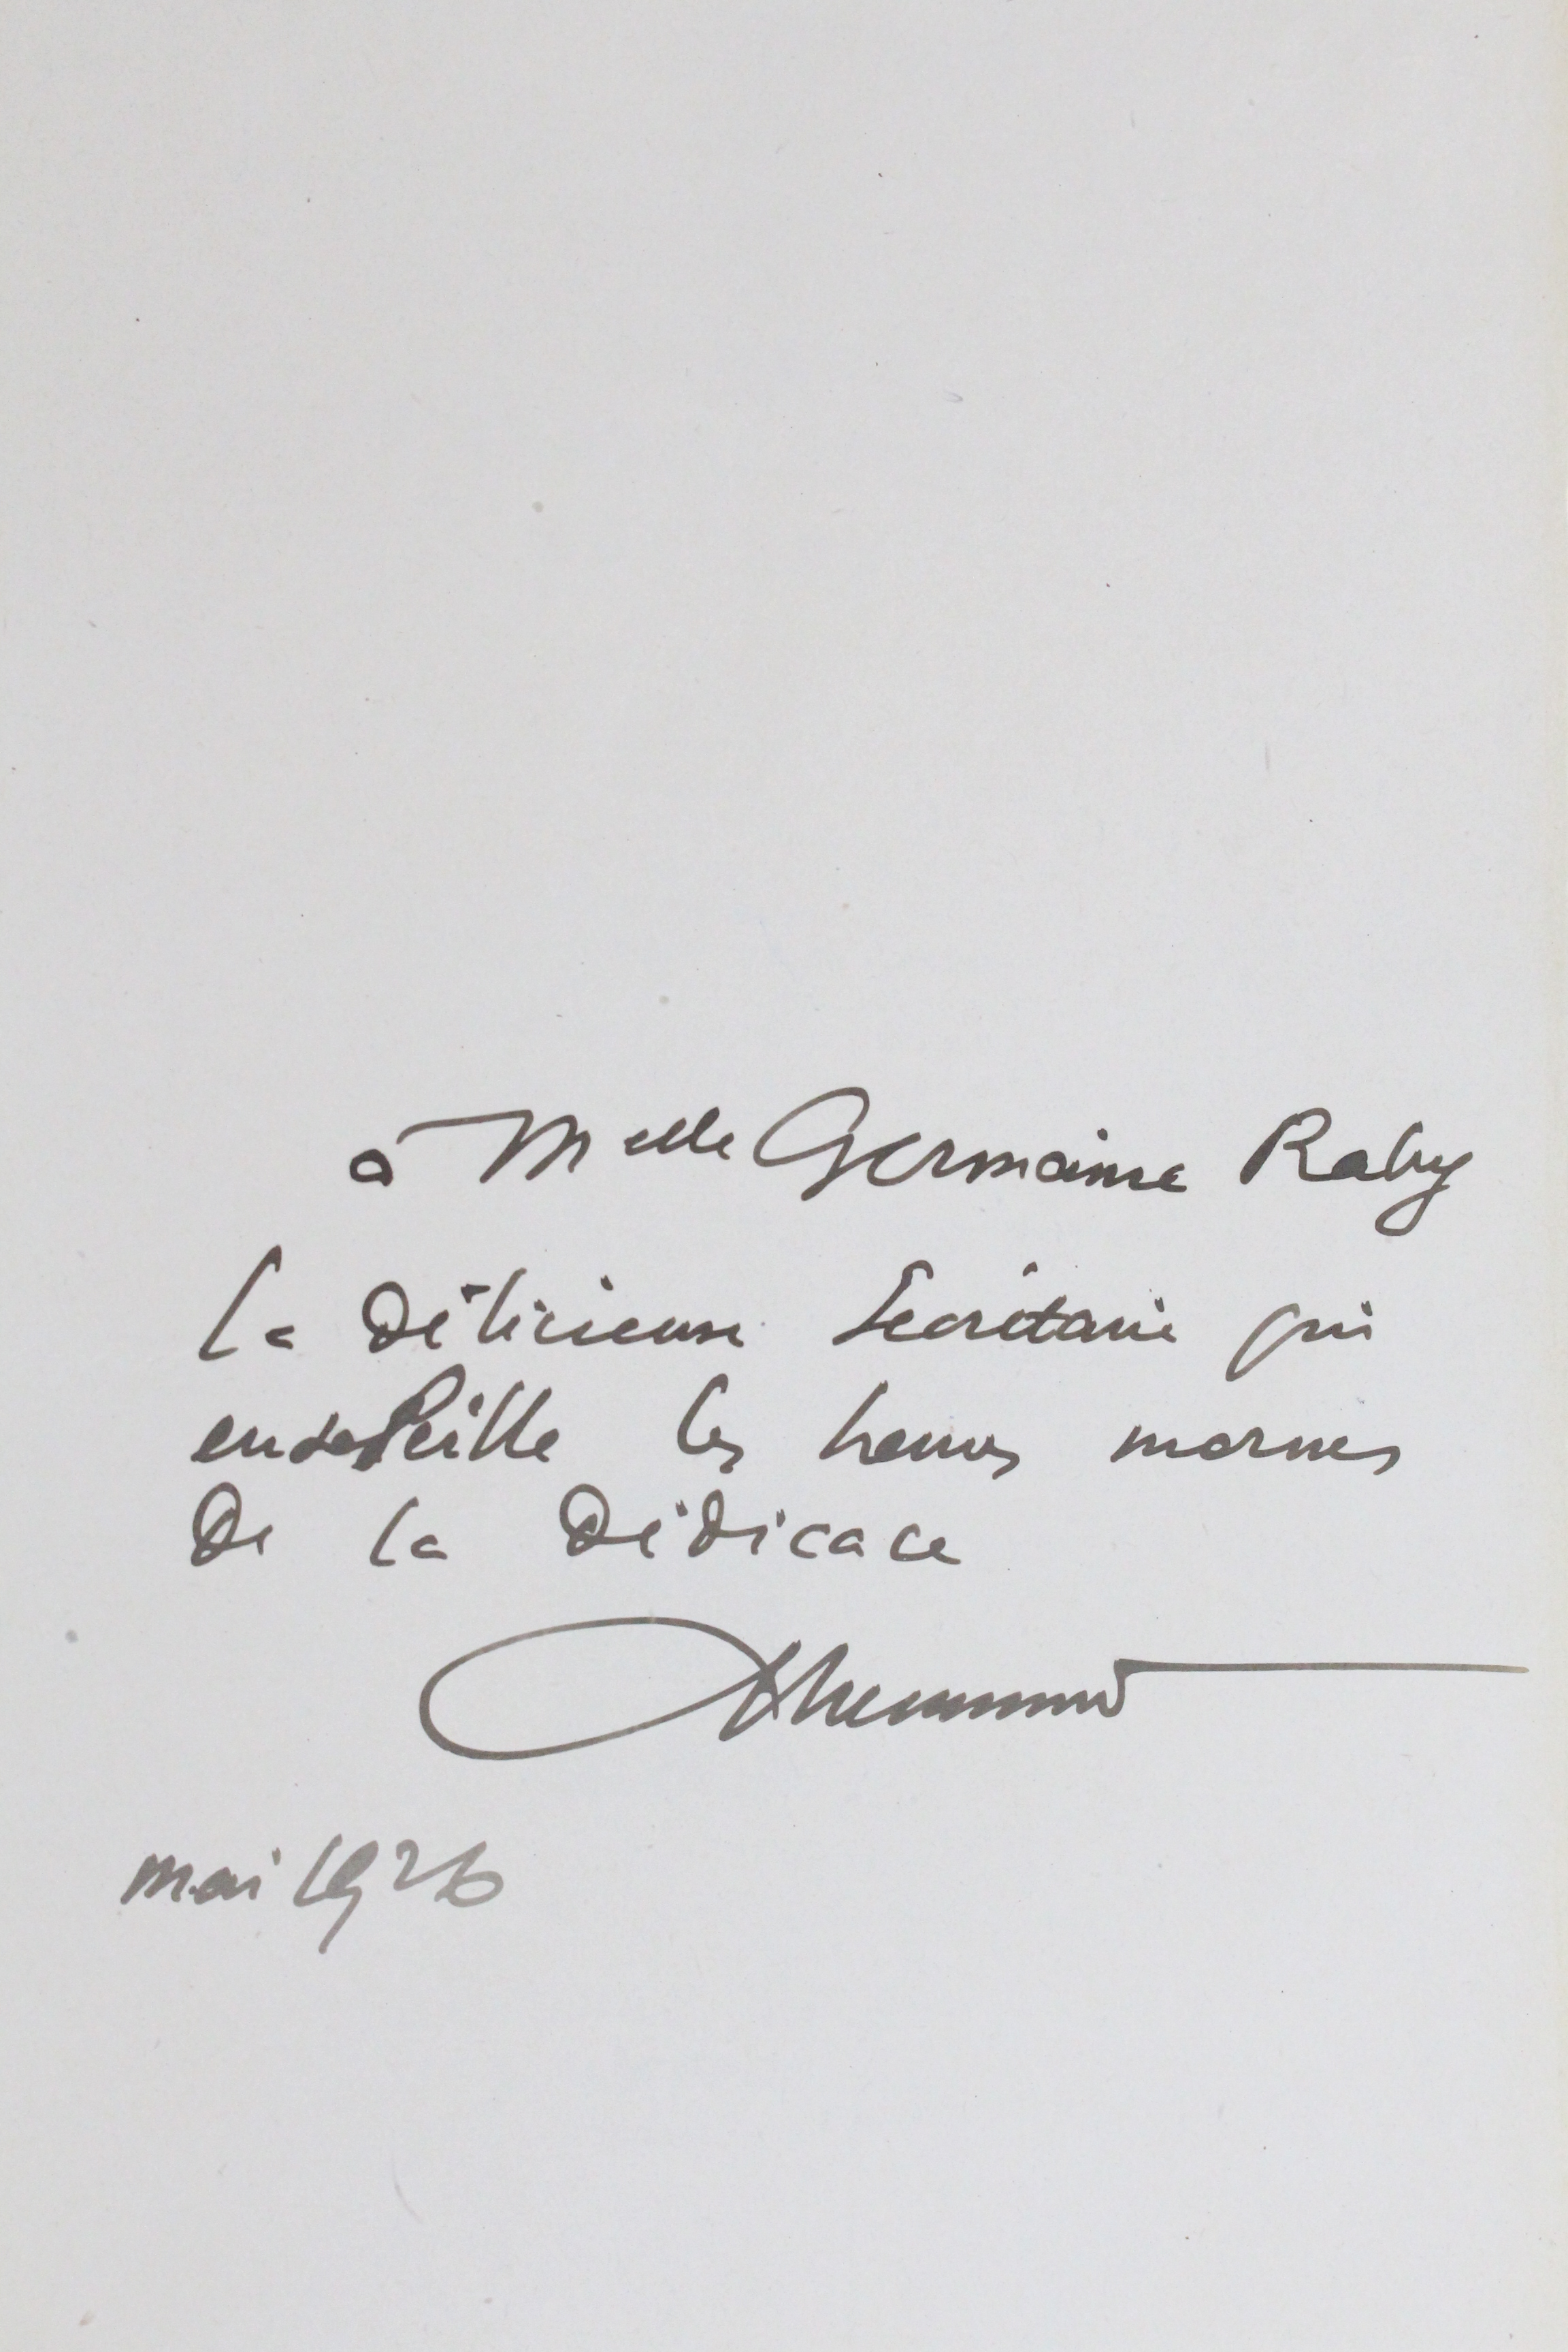 à Melle Germaine Raby
la délicieuse secrétaire qui
ensoleille les heures mornes
de la dédicace
mai 1926